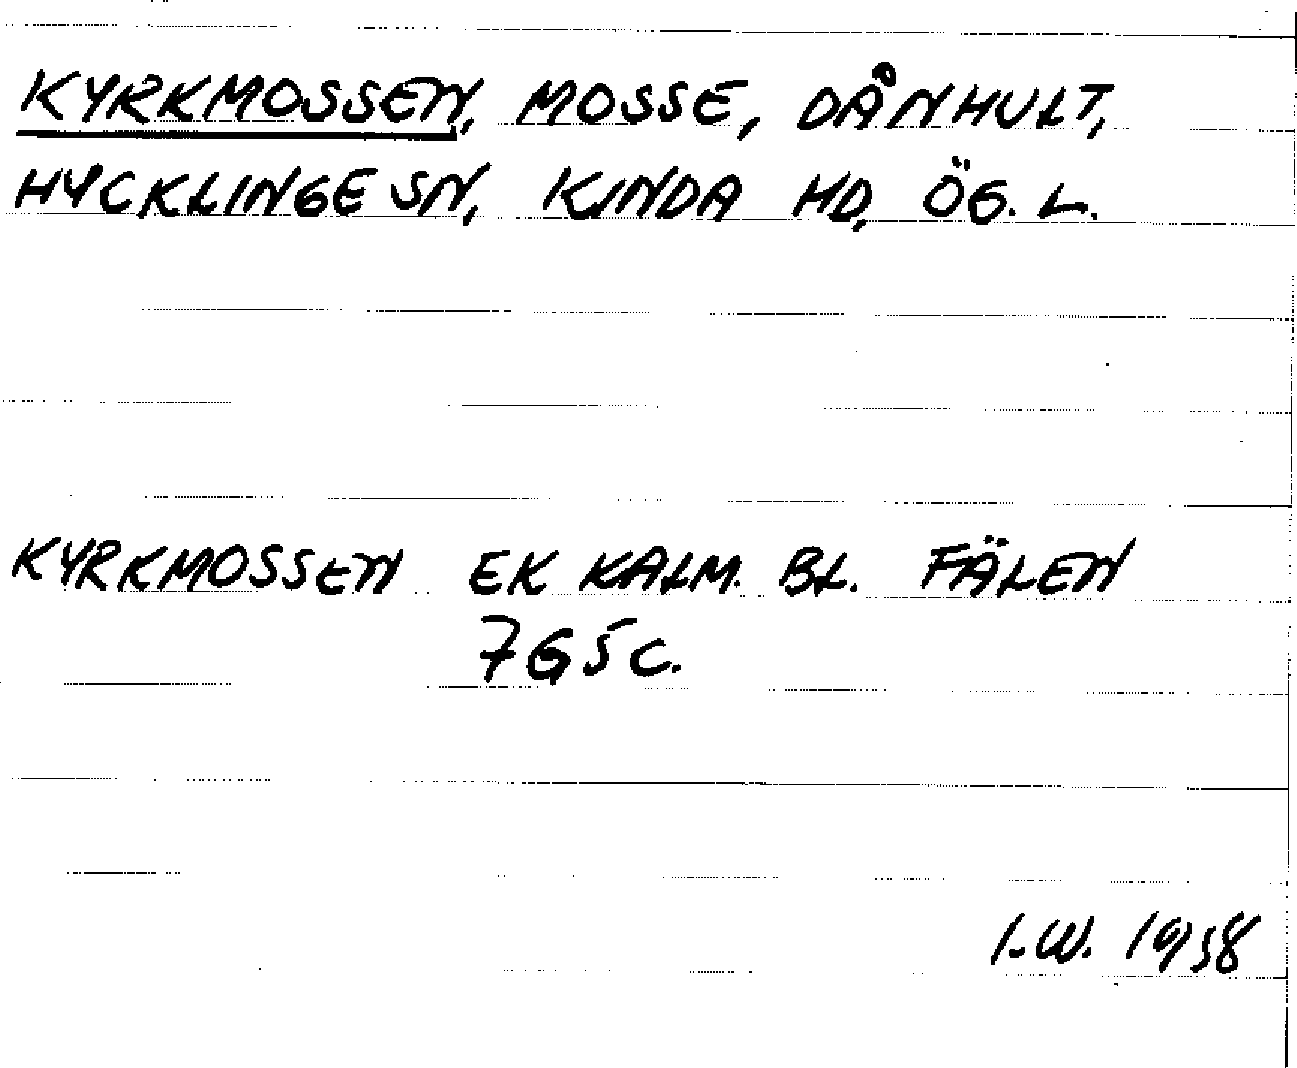 KYRKMOSSEN, MOSSE, DÅNHULT,
HYCKLINGE SN, KINDA HD, ÖG. L.
KYRKMOSSEN EK KALM. BL. FÄLEN
7G5c.
I.W. 1958